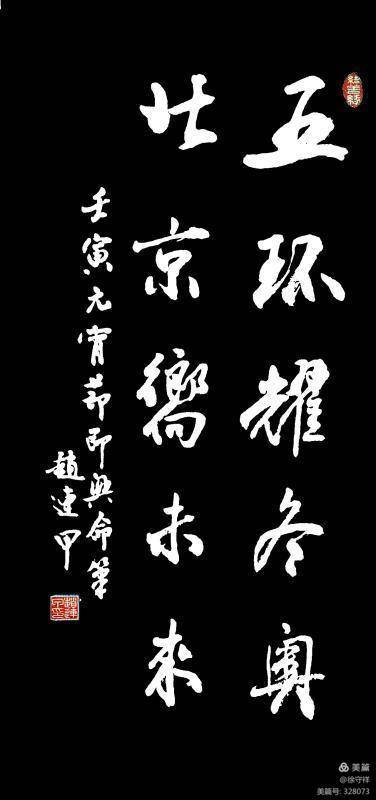 五环耀冬奥
北京嚮未来
壬寅元宵节即兴命笔
趙連甲
美篇
@徐守祥
美篇号: 328073